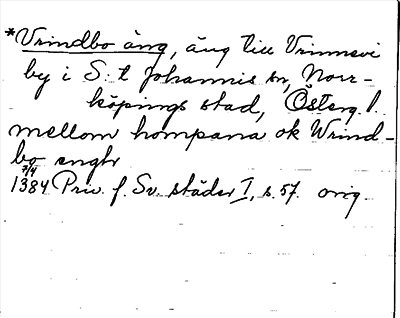 *Vrindbo äng, äng till Vrinnevi
by i S:t Johannis sn, Norr-
köpings stad, Österg. l.
mellom hompana ok Wrind-
bo ængh
7/4
1384 Priv. f. Sv. städer I, s. 57. orig.